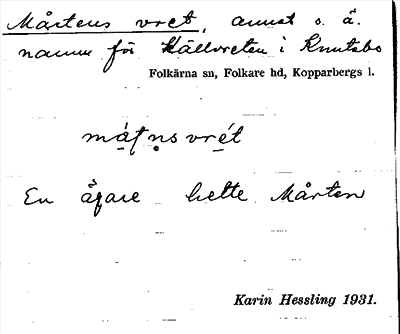 Mårtens vret, annat o. ä.
namn för Källvreten i Knutsbo
Folkärna sn, Folkare hd, Kopparbergs l.
má̱ṭṇs vré̱t
En ägare hette Mårten
Karin Hessling 1931.